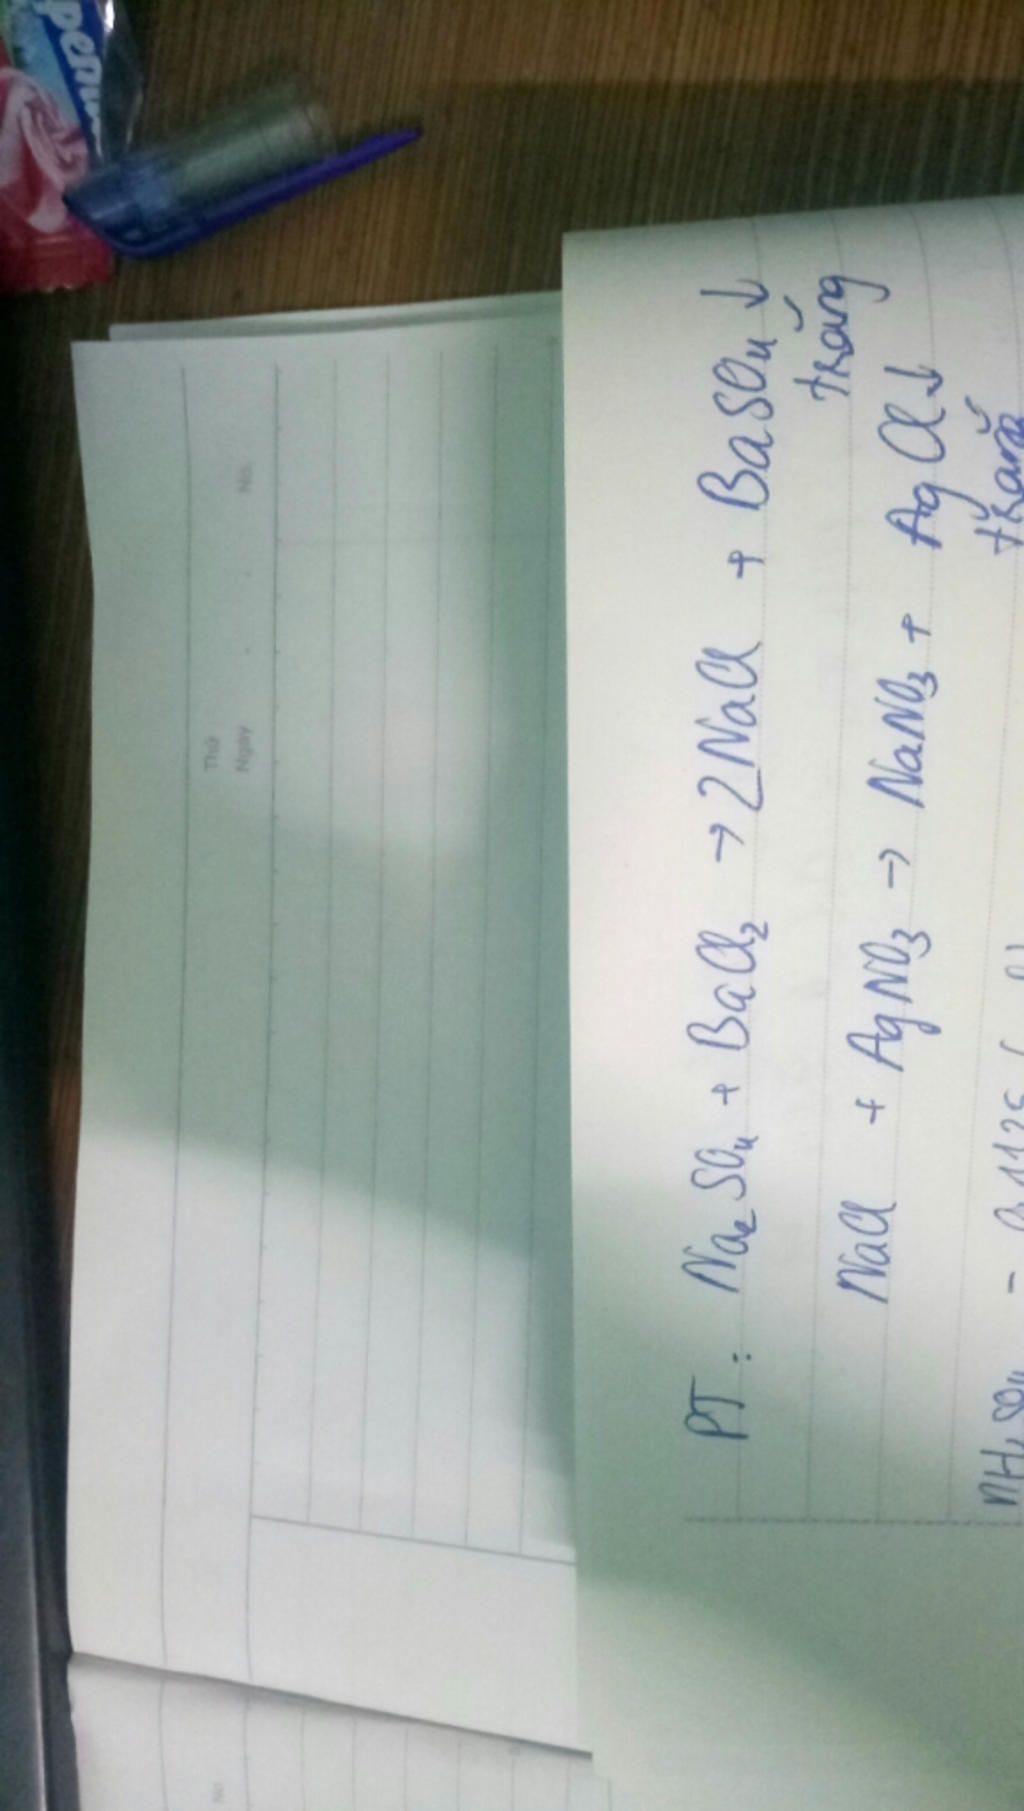 PT: Na₂SO₄ + BaCl₂ → 2NaCl + BaSO₄↓
trắng
NaCl + AgNO₃ → NaNO₃ + AgCl↓
trắng
nH₂SO₄ = 0,1125
Thứ
Ngày
No.
No